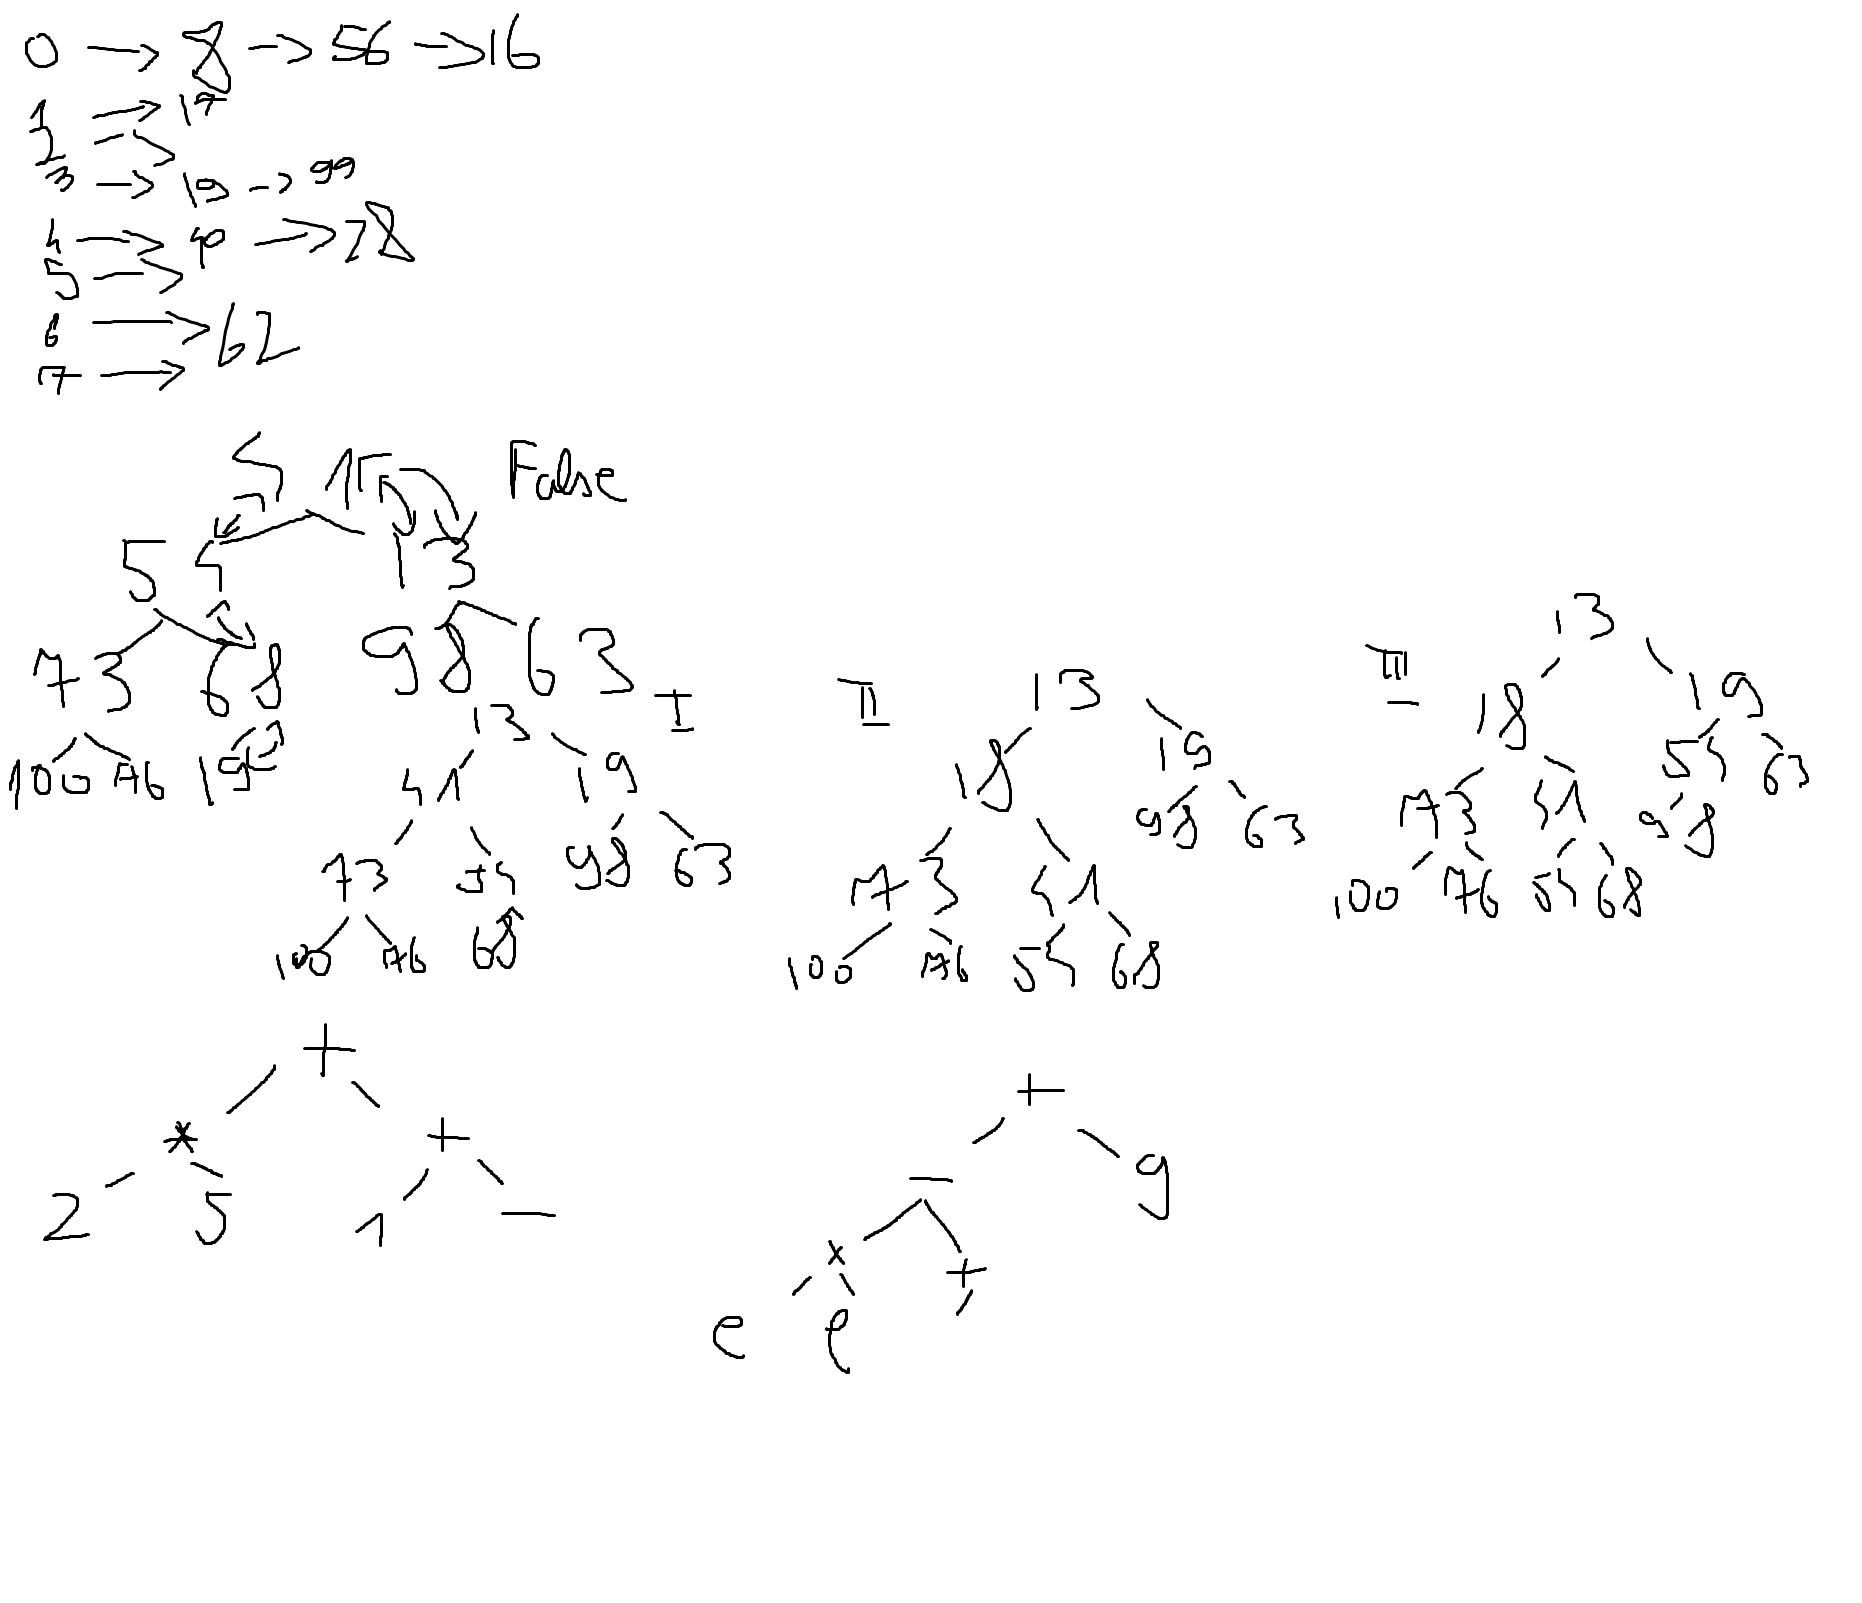 0 → 8 → 56 → 16
1 → 17
2 →
3 → 19 → 99
4 → →
5 →
6 → 62
7 →
15 False
54 13
73 68 98 63
100 76 19
I
13
41 19
73 54 98 63
100 76 68
II
13
18 19
73 41 98 63
100 76 54 68
III
13
18 19
73 41 54 63
100 76 54 68 98
+
* +
2 5 1 −
+
− 9
* +
e e